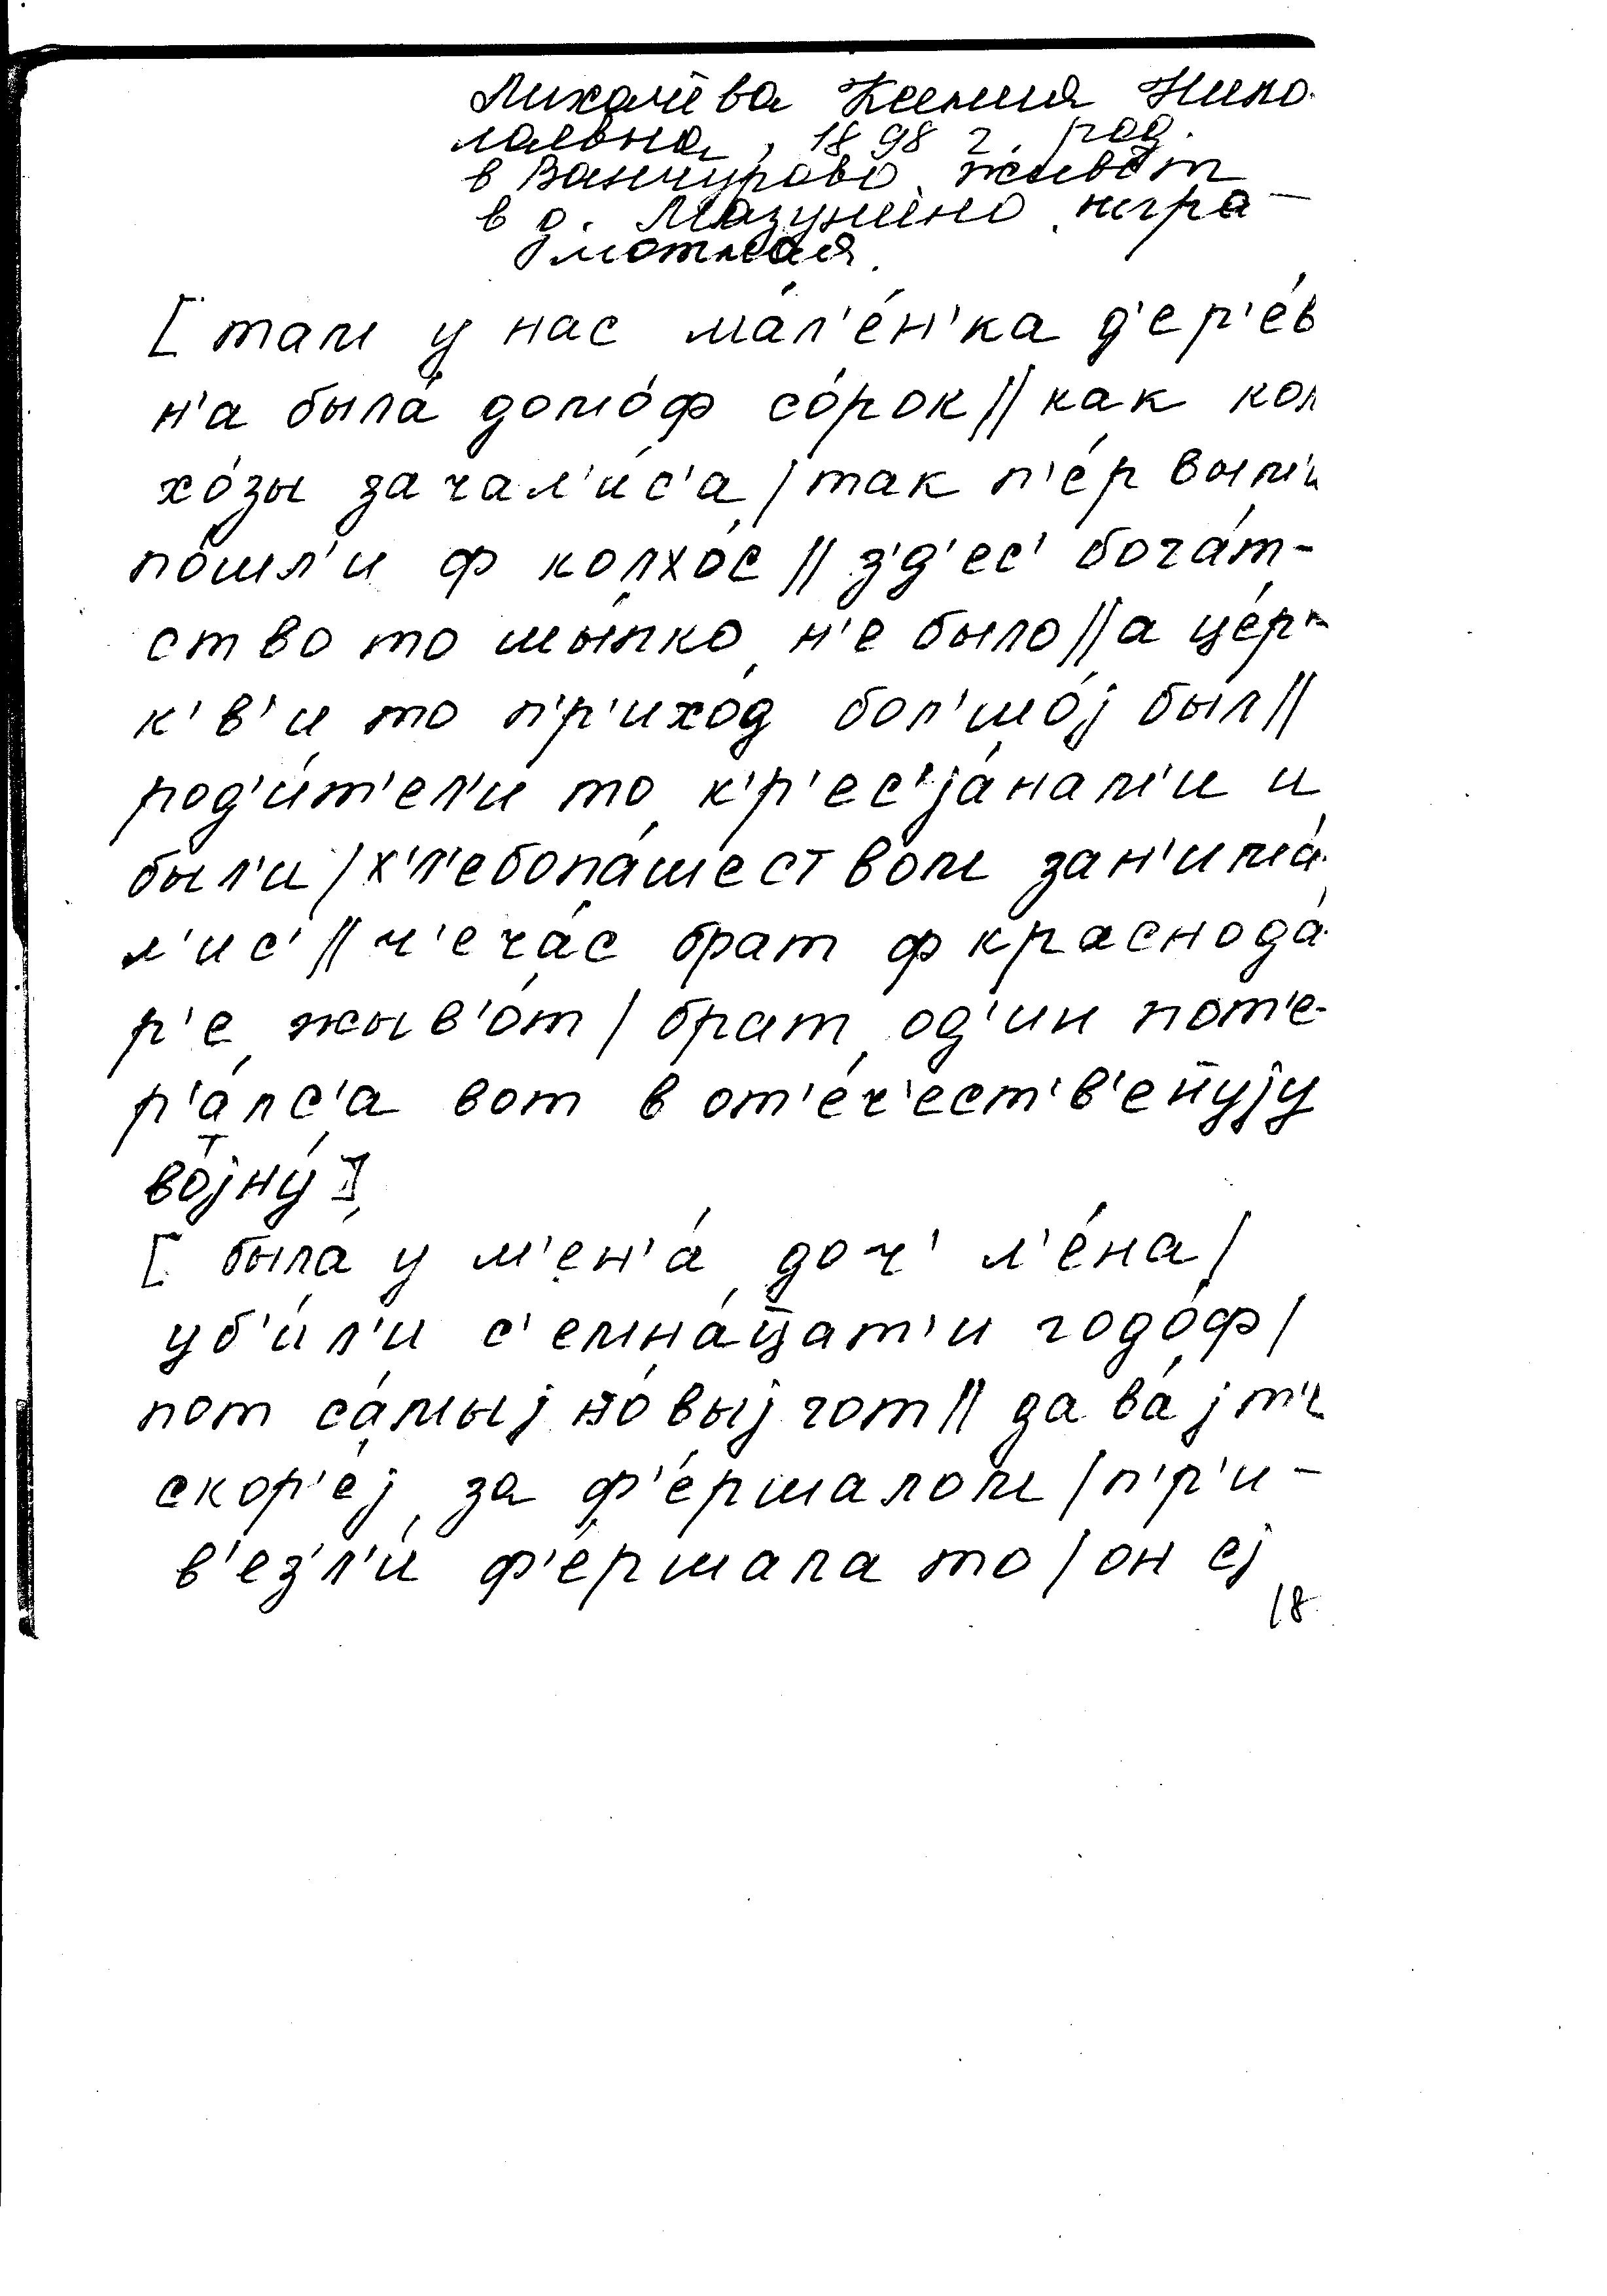 Лихачёва Ксения Нико-
лаевна, 1898 г. род.
в Ванчурово, живёт
в д. Мазунино, негра-
мотная.
[там у нас ма́л'е́н'ка д'ер'е́в
н'а была́ домо́ф со́рок//как кол
хо́зы зачал'и́с'а/так п'е́рвым'и
по́шл'и ф колхо́с//з'д'ес' бога́т-
ство то шы́пко н'е было//а це́р-
к'в'и то п'р'ихо́д бол'шо́j был//
род'и́т'ел'и то к'р'ес'jа́нам'и и
был'и/х'л'ебопа́шеством зан'има́-
л'ис'//ч'еча́с брат ф краснода́-
р'е жыв'о́т/брат од'ин пот'е-
р'а́лс'а вот в от'е́ч'ест'в'ен̄уjу
воjну́]
[была́ у м'ен'а́ доч' л'е́на/
уб'и́л'и с'емна́ц̄ат'и годо́ф/
пот са́мыj но́выj гот//дава́jт'и
скор'е́j за ф'е́ршалом/п'р'и-
в'ез'л'и́ ф'е́ршала то/он еj
18